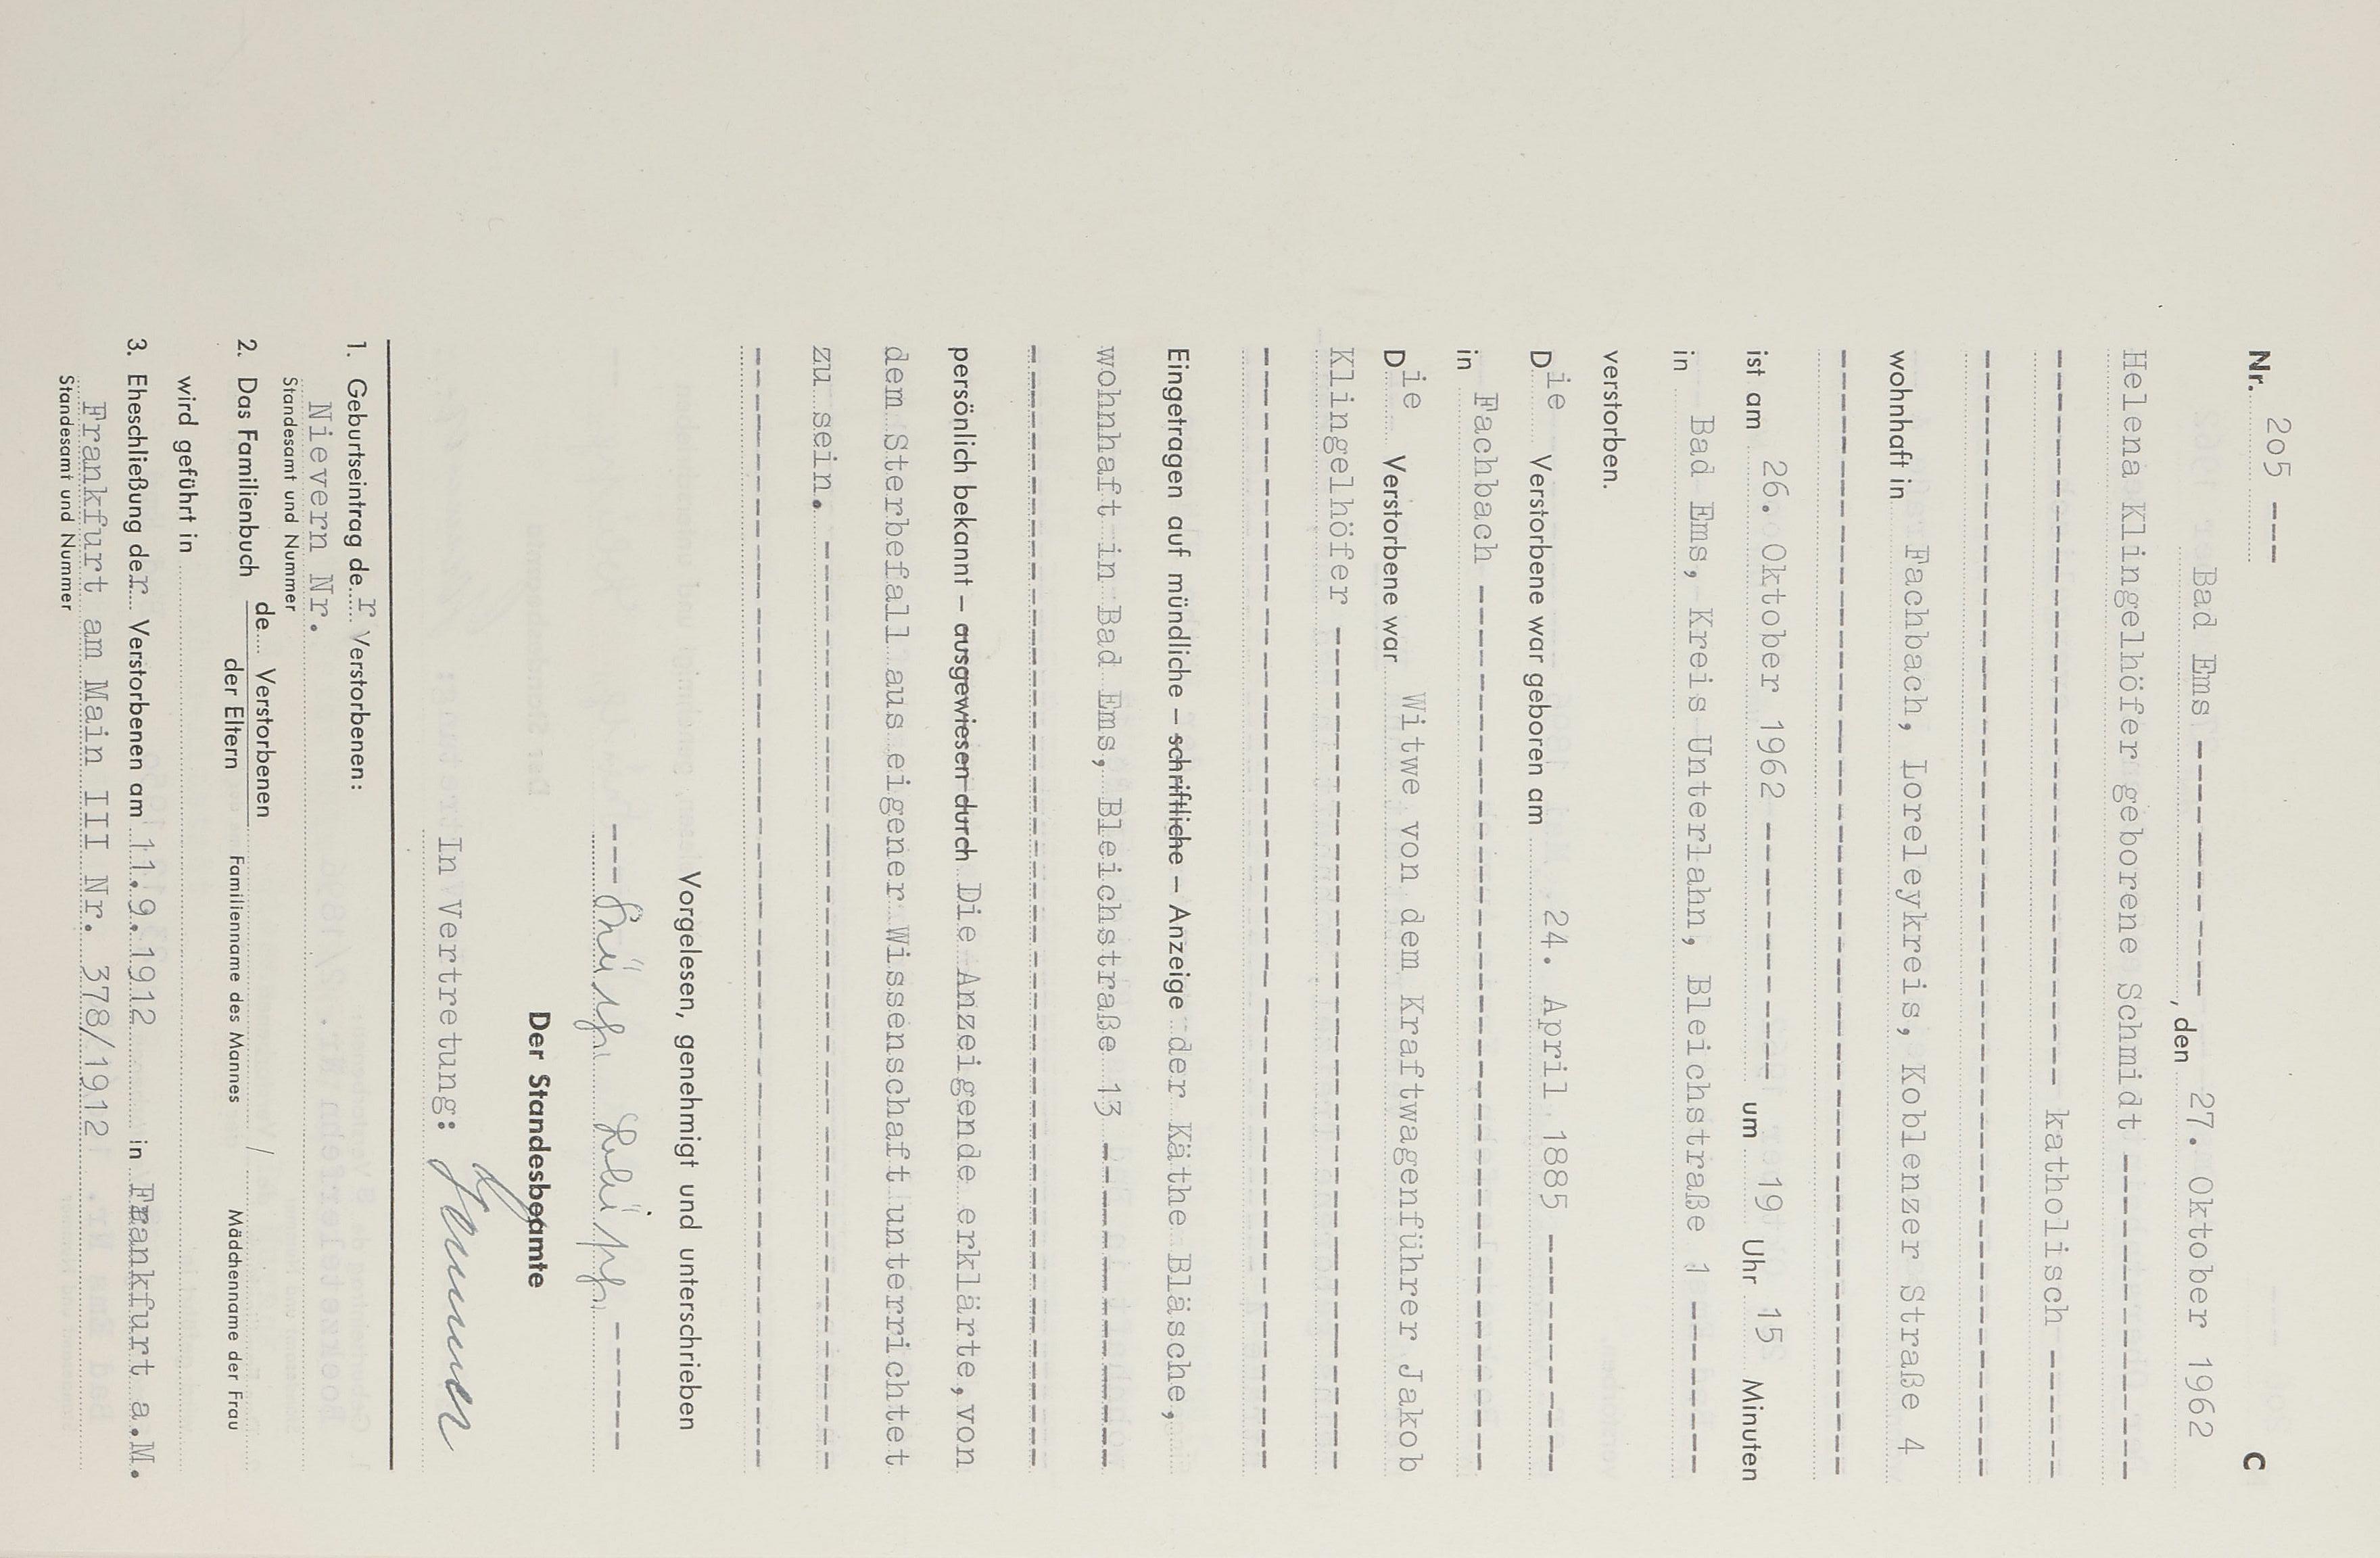 Nr. 2o5 --- C
Bad Ems ----------, den 27. Oktober 1962
Helena Klingelhöfer geborene Schmidt ------------
------------------------------ katholisch ------
-----------------------------------------------
wohnhaft in Fachbach, Loreleykreis, Koblenzer Straße 4
-----------------------------------------------
ist am 26. Oktober 1962 ----------- um 19 Uhr 15 Minuten
in Bad Ems, Kreis Unterlahn, Bleichstraße 1 -------
verstorben.
Die Verstorbene war geboren am 24. April 1885 ----------
in Fachbach --------------------------------------
Die Verstorbene war Witwe von dem Kraftwagenführer Jakob
Klingelhöfer -----------------------------------
-----------------------------------------------
Eingetragen auf mündliche – schriftliche – Anzeige der Käthe Bläsche,
wohnhaft in Bad Ems, Bleichstraße 13 -------------
-----------------------------------------------
persönlich bekannt – ausgewiesen durch Die Anzeigende erklärte, von
dem Sterbefall aus eigener Wissenschaft unterrichtet
zu sein. ----------------------------------------
-----------------------------------------------
Vorgelesen, genehmigt und unterschrieben
--- ------
Der Standesbeamte
In Vertretung:
1. Geburtseintrag der Verstorbenen:
Nievern Nr.
Standesamt und Nummer
2. Das Familienbuch de Verstorbenen /
der Eltern Familienname des Mannes Mädchenname der Frau
wird geführt in
3. Eheschließung der Verstorbenen am 11.9.1912 in Frankfurt a.M.
Frankfurt am Main III Nr. 378/1912
Standesamt und Nummer